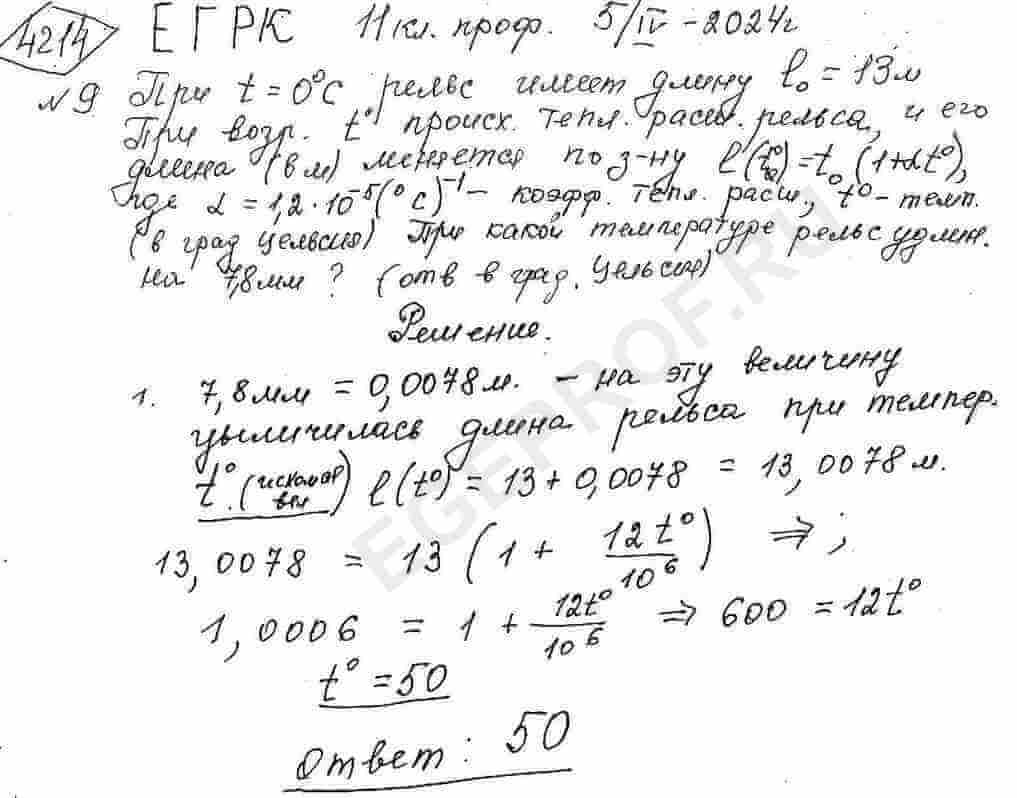 4214 ЕГРК 11 кл. проф. 5/IV - 2024г
N 9 При t = 0°C рельс имеет длину l₀ = 13м
При возр. t° происх. тепл. расш. рельса, и его
длина (в м) меняется по з-ну l(t°) = t₀ (1+αt°),
где α = 1,2·10⁻⁵(°C)⁻¹ – коэфф. тепл. расш., t° – темп.
(в град Цельсия) При какой температуре рельс удлин.
на 7,8мм ? (отв в град. Цельсия)
Решение.
1. 7,8мм = 0,0078м. – на эту величину
увеличилась длина рельса при темпер.
t°. (искомая) l(t°) = 13 + 0,0078 = 13,0078 м.
13,0078 = 13 (1 + 12t°/10⁶) ⇒ ;
1,0006 = 1 + 12t°/10⁶ ⇒ 600 = 12t°
t° = 50
Ответ: 50
EGEPROF.RU